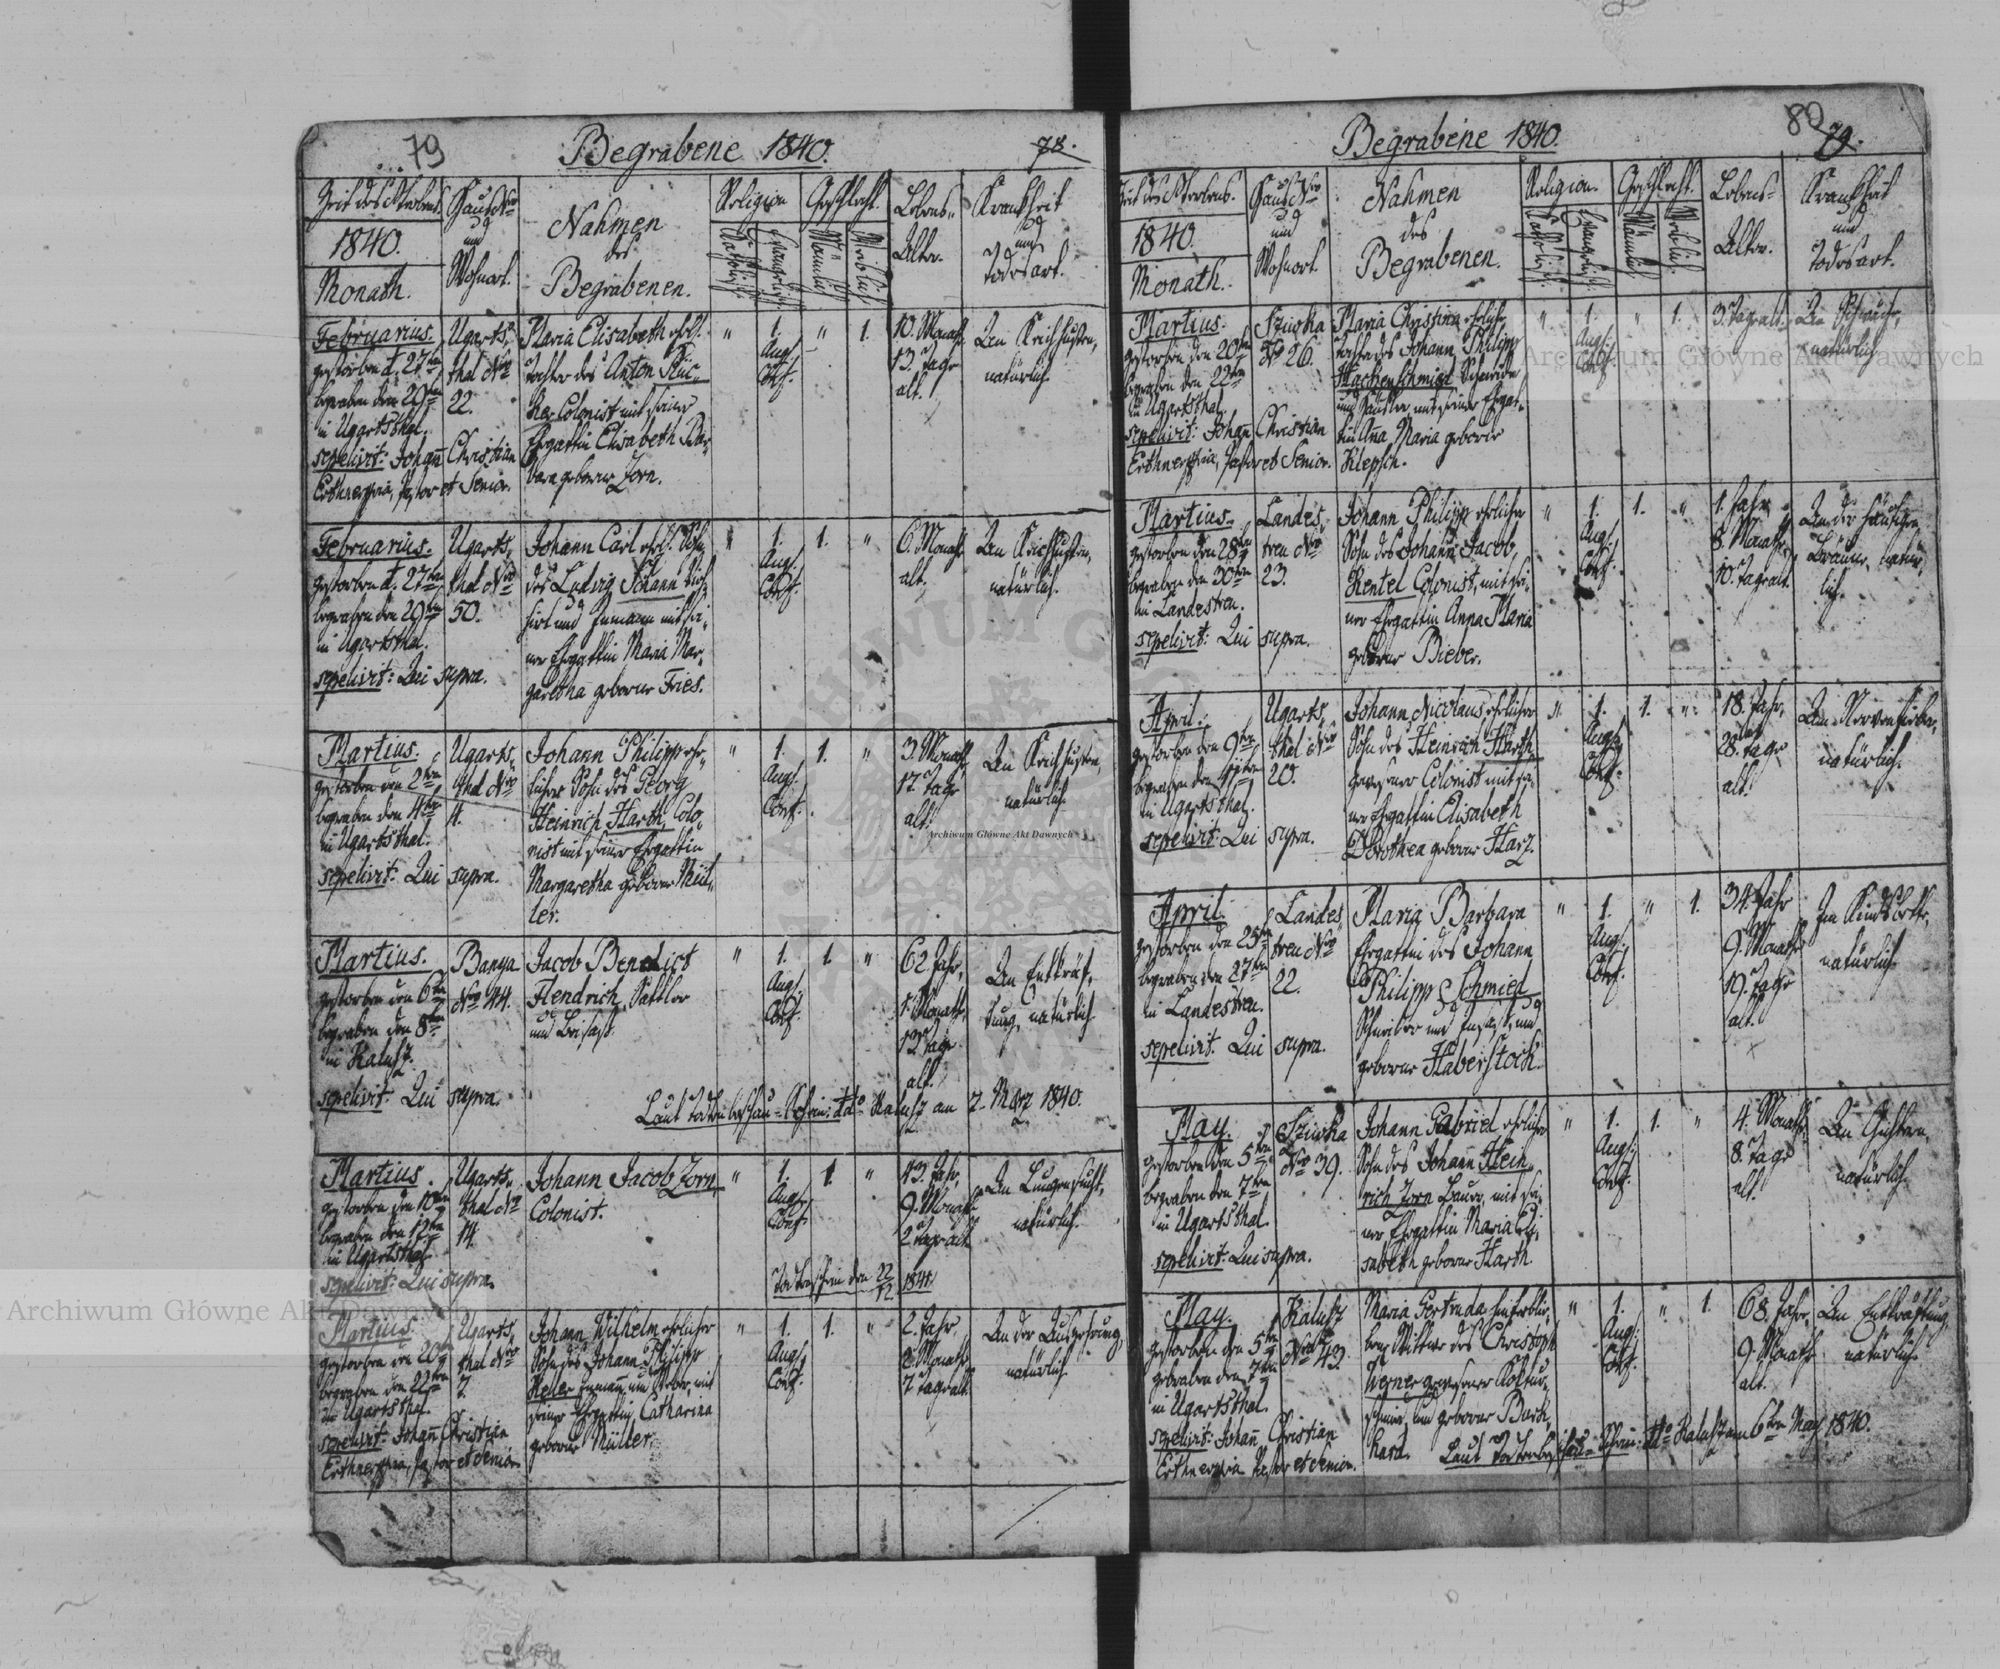 79
Begrabene 1840.
78.
Zeit des Sterbens.
1840.
Monath.
Haus Nro
und
Wohnort.
Nahmen
des
Begrabenen.
Religion
Katholisch
Evangelisch
Geschlecht.
Männlich
Weiblich
Lebens-
Alter.
Krankheit
und
Todesart.
Februarius.
gestorben d. 27ten
begraben den 29ten
in Ugartsthal.
sepelivit: Johañ Christian
Pastor et Senior.
Ugarts-
thal Nro
22.
Maria Elisabeth ehel.
Tochter des Anton
Colonist mit seiner
Ehegattin Elisabeth Bar-
bara geborne Zorn.
" 1. " 1.
Aug.
Conf.
10. Monath
13. Tage
alt.
Am Keichhusten,
natürlich.
Februarius.
gestorben d. 27ten
begraben den 29ten
in Ugartsthal.
sepelivit: Qui supra.
Ugarts-
thal Nro
50.
Johann Carl ehel. Sohn
des Ludwig Johann
hirt und Inmann mit sei-
ner Ehegattin Maria Mar-
garetha geborne Fries.
" 1. 1. "
Aug.
Conf.
6. Monath
alt.
Am Keichhusten,
natürlich.
Martius.
gestorben den 2ten
begraben den 4ten
in Ugartsthal.
sepelivit: Qui supra.
Ugarts-
thal Nro
4.
Johann Philipp ehe-
licher Sohn des Georg
Heinrich Harth, Colo-
nist mit seiner Ehegattin
Margaretha geborne Mül-
ler.
" 1. 1. "
Aug.
Conf.
3. Monath
17 Tage
alt.
Am Keichhusten,
natürlich.
Martius.
gestorben den 6ten
begraben den 8ten
in Kalusz.
sepelivit: Qui supra.
Banya
Nro 44.
Jacob Benedict
Hendrich, Sattler
und Beisass.
" 1. 1. "
Aug.
Conf.
62 Jahr,
1. Monath,
Tage
alt.
An Entkräf-
tung, natürlich.
Laut Todtenbeschau-Schein: dto Kalusz am 7. März 1840.
Martius.
gestorben den 10ten
begraben den 12ten
in Ugartsthal
sepelivit: Qui supra.
Ugarts-
thal Nro
14.
Johann Jacob Zorn
Colonist.
" 1. 1. "
Aug.
Conf.
43. Jahr,
9. Monath
2 Tage alt.
An Lungensucht,
natürlich.
Todtenschein den 22/12 1841
Martius.
gestorben den 20ten
begraben den 22ten
in Ugartsthal.
sepelivit: Johañ Christian
Pastor et Senior
Ugarts-
thal Nro
7.
Johann Wilhelm ehelicher
Sohn des Johann Philipp
Keller Inmann und Weber, mit
seiner Ehegattin Catharina
geborne Müller.
" 1. 1. "
Aug.
Conf.
2. Jahr,
Monath
7 Tage alt.
An der Auszehrung,
natürlich
80
79.
Begrabene 1840.
Zeit des Sterbens.
1840.
Monath.
Haus Nro
und
Wohnort.
Nahmen
des
Begrabenen.
Religion.
Katholisch
Evangelisch
Geschlecht.
Männlich
Weiblich
Lebens-
Alter.
Krankheit
und
Todesart.
Martius.
gestorben den 20ten
begraben den 22ten
in Ugartsthal.
sepelivit: Johañ Christian
Pastor et Senior.
Sziwka
No 26.
Maria Christina eheliche
Tochter des Johann Philipp
Hachenschmied Schneider
und Häusler, mit seiner Ehegat-
tin Aña Maria geborne
Klepsch.
" 1. " 1.
Aug.
Conf.
3. Tage alt.
An Schwäche,
natürlich.
Martius.
gestorben den 28ten
begraben den 30ten
in Landestreu.
sepelivit: Qui supra.
Landes-
treu Nro
23.
Johann Philipp ehelicher
Sohn des Johann Jacob
Rentel Colonist, mit sei-
ner Ehegattin Anna Maria
geborne Bieber.
" 1. 1. "
Aug.
Conf.
1. Jahr
8. Monath
10. Tage alt.
An der häutigen
Bräune, natür-
lich.
April.
gestorben den 9ten
begraben den 11ten
in Ugartsthal.
sepelivit: Qui supra.
Ugarts-
thal Nro
20.
Johann Nicolaus ehelicher
Sohn des Heinrich Harth
gewesener Colonist mit sei-
ner Ehegattin Elisabeth
Dorothea geborne Harz.
" 1. 1. "
Aug.
Conf.
18. Jahr,
28. Tage
alt.
Am Nervenfieber,
natürlich.
April.
gestorben den 25ten
begraben den 27ten
in Landestreu.
sepelivit: Qui supra.
Landes-
treu Nro
22.
Maria Barbara
Ehegattin des Johann
Philipp Schmied
Schreiber und Insasse, und
geborne Haberstock.
" 1. " 1.
Aug.
Conf.
34. Jahr
9. Monath
19. Tage
alt.
Im Kindsbette,
natürlich.
May.
gestorben den 5ten
begraben den 7ten
in Ugartsthal.
sepelivit: Qui supra.
Sziwka
Nro 39.
Johann Gabriel ehelicher
Sohn des Johann Hein-
rich Zorn Bauer, mit sei-
ner Ehegattin Maria Eli-
sabeth geborne Harth.
" 1. 1. "
Aug.
Conf.
4. Monath
8. Tage
alt.
An Gichtern,
natürlich.
May.
gestorben den 5ten
begraben den 7ten
in Ugartsthal.
sepelivit: Johañ Christian
Pastor et Senior.
Kalusz
Nro 43.
Maria Gertruda hinterblie-
bene Wittwe des Christoph
Werner gewesener
schmied, und geborne Burk-
hard.
" 1. " 1.
Aug.
Conf.
68. Jahr,
9. Monath
alt.
An Entkräftung,
natürlich.
Laut Todtenbeschau-Schein: dto Kalusz am 6ten May 1840.
Archiwum Główne Akt Dawnych
Archiwum Główne Akt Dawnych
Archiwum Główne Akt Dawnych